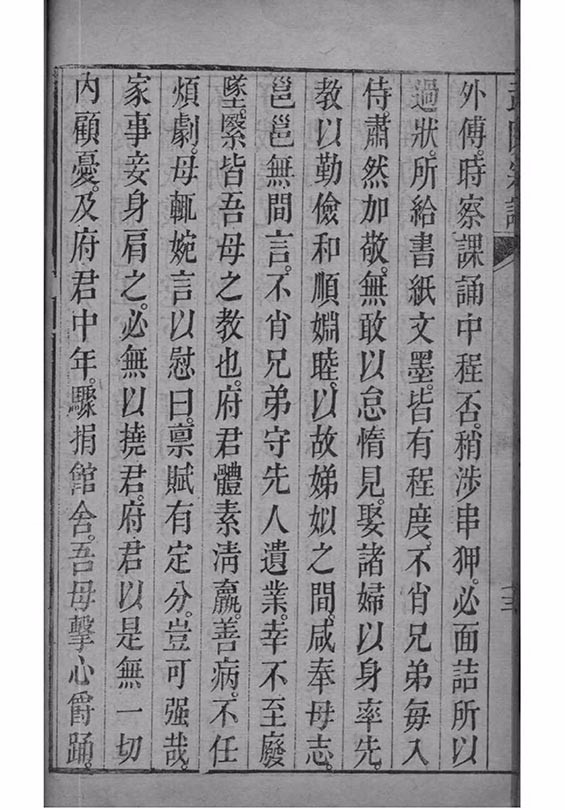 外傅。時察課誦中程否。稍涉串狎。必面詰所以
過狀。所給書紙文墨。皆有程度。不肖兄弟每入
侍。肅然加敬。無敢以怠惰見。娶諸婦以身率先。
教以勤儉和順婣睦。以故娣姒之間。咸奉母志。
邕邕無間言。不肖兄弟守先人遺業。幸不至廢
墜。緊皆吾母之教也。府君體素淸羸。善病。不任
煩劇。母輒婉言以慰曰。禀賦有定分。豈可强哉。
家事妾身肩之。必無以撓君。府君以是無一切
內顧憂。及府君中年。驟捐館舍。吾母擊心爵踊。